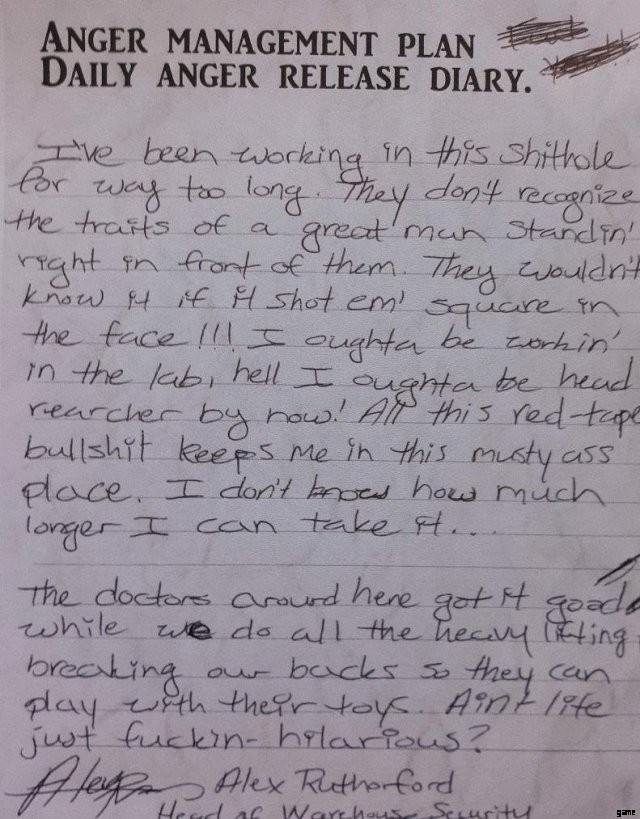 ANGER MANAGEMENT PLAN
DAILY ANGER RELEASE DIARY.
I've been working in this shithole
for way too long. They don't recognize
the traits of a great man standin'
right in front of them. They wouldn't
know it if it shot em' square in
the face!!! I oughta be workin'
in the lab, hell I oughta be head
rearcher by now! All this red-tape
bullshit keeps me in this musty ass
place. I don't know how much
longer I can take it...
The doctors around here got it good
while we do all the heavy lifting
breaking our backs so they can
play with their toys. Aint life
just fuckin- hilarious?
Alex Rutherford
Head of Warehouse Security
game